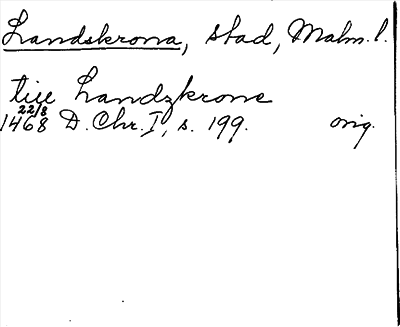 Landskrona, stad, Malm. l.
tiil Landzkrone
22/8
1468 D. Chr. I, s. 199. orig.